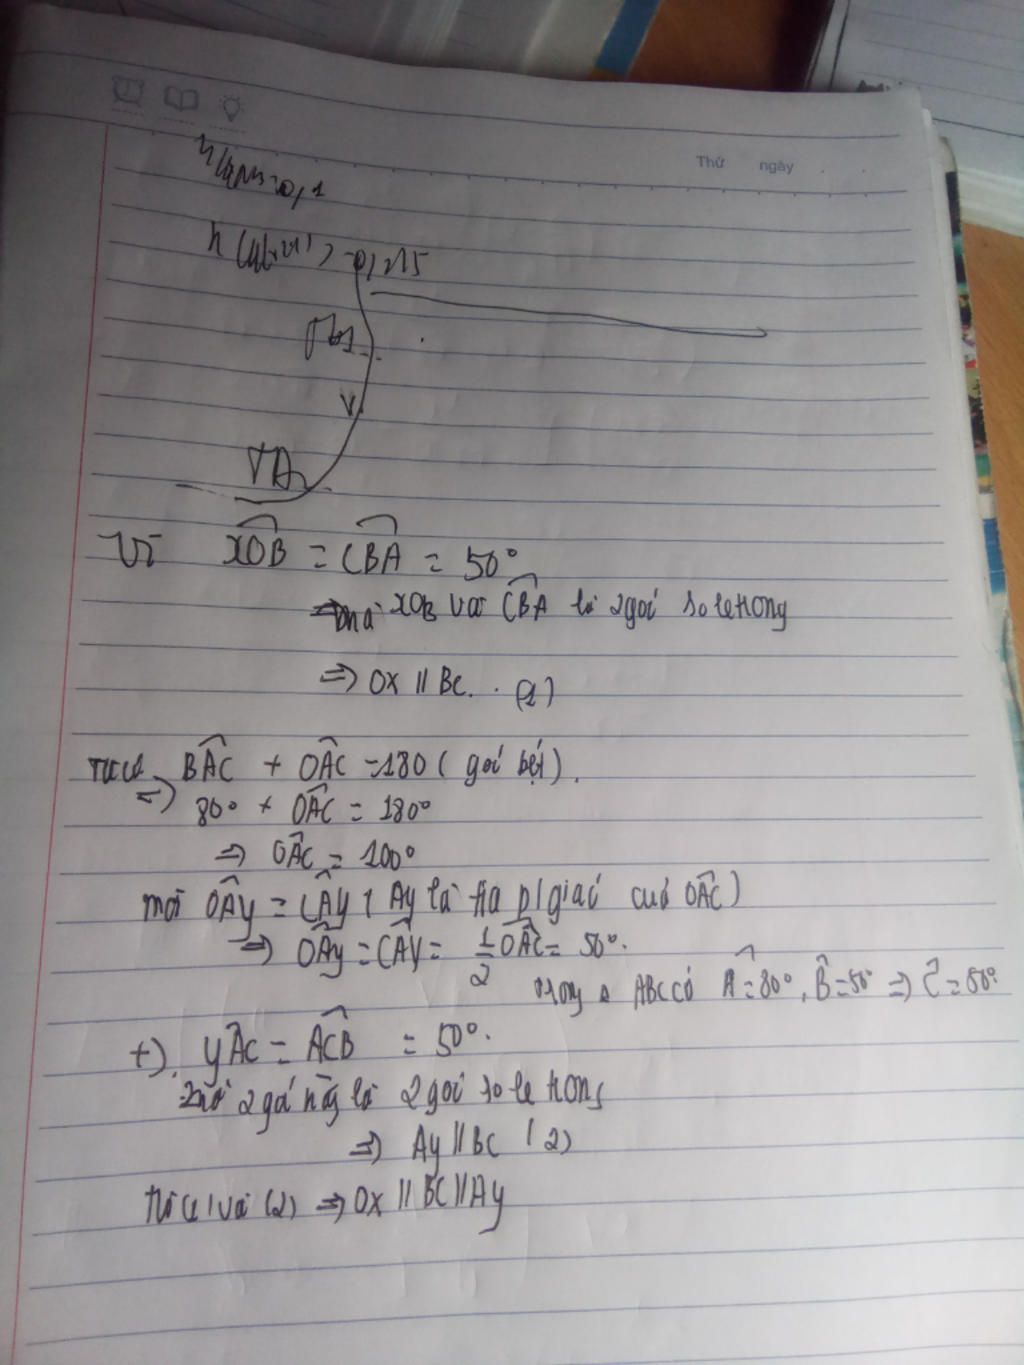 Thứ ngày
Vì xOB = CBA = 50°
mà xOB và CBA là 2 goí so le trong
=> Ox // BC. (1)
BAC + OAC = 180 ( goí bẹt).
=> 80° + OAC = 180°
=> OAC = 100°
OAy = CAy ( Ay là tia p/giác củả OAC)
=> OAy = CAy = 1/2 OAC = 50°.
trong Δ ABC có A = 80°, B = 50° => C = 50°.
+). yAC = ACB = 50°.
2 goí này là 2 goí so le trong
=> Ay // BC (2)
và (2) => Ox // BC // Ay